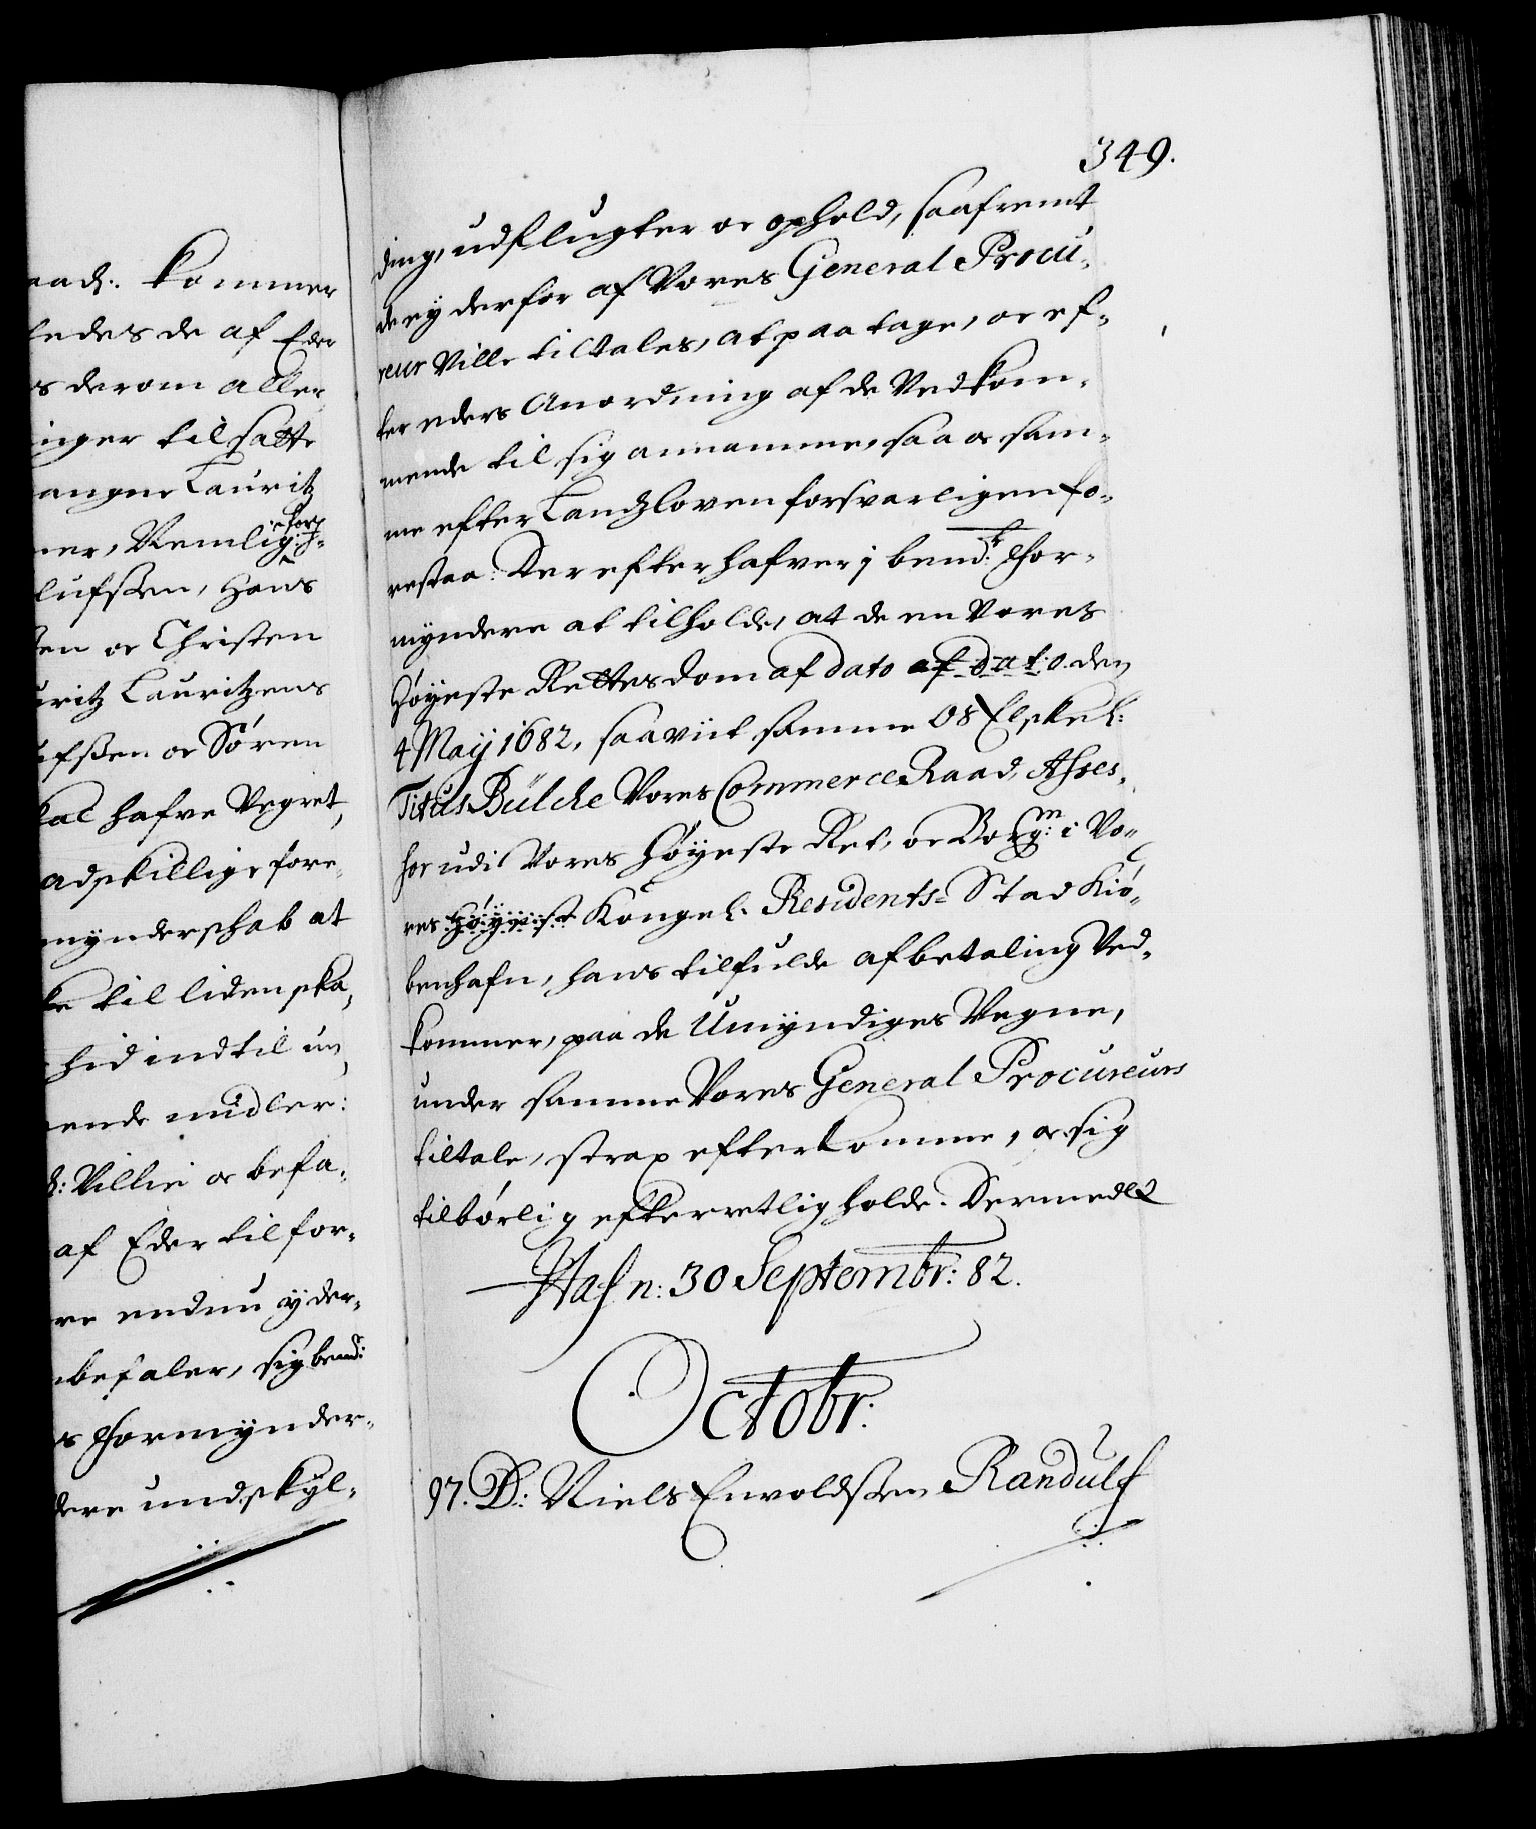 aad: kommer
ledes de af Eder
s derom aller
inger tilsatte
angne Lauritz
ner, Nemlig:
lufssen, Hans
en oc Christen
uritz Lauritzens
ufssen oc Søren
kal hafve Vegret,
adskillige fore
mynderschab at
ke til liden ska,
hid indtil un
ende midler:
d: Villie oc befa,
af Eder tilfor,
re endnu yder,
befaler, sig bemd:
s Formynder,
dere undskyl,
349.
ding, udflugter oc ophold, saafremt
de ey derfor af Vores General Procu,
reur Ville tiltales, at paatage, oc ef,
ter eders Anordning af de Vedkom,
mende til sig annamme, saa oc sam,
me efter Landzloven forsvarligen fo,
restaa. Derefter hafver j bemd:te For,
myndere at tilholde, at de en Vores
Høyeste Rettes dom af dato af dato den
4 Maij 1682, saaviit samme Os Elskel:
Titus Bülche Vores Commerce Raad, Asses,
sor udi Vores Høyeste Ret, oc Borgm: i Vo,
res Høyeste Kongel. Residents-Stad Kiø,
benhafn, hans tilfulde afbetaling Ved,
kommer, paa de Umyndiges Vegne,
under samme Vores General Procureurs
tiltale, strax efterkomme, oc sig
tilbørlig efterretlig holde. Dermed &c
Hafn: 30 Septembr: 82.
Octobr:
97. D: Niels Envoldssen Randulf